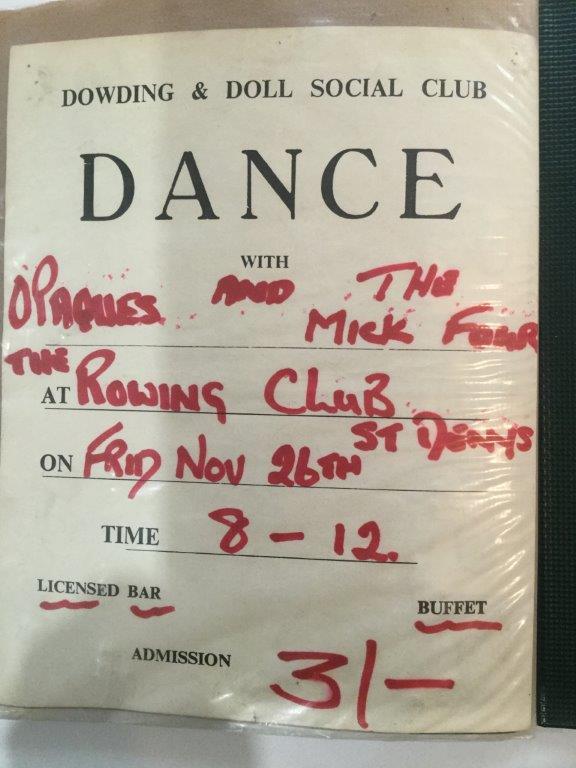 DOWDING & DOLL SOCIAL CLUB
DANCE
WITH
OPAQUES AND THE
MICK FOUR
AT THE ROWING CLUB
ST DENYS
ON FRID NOV 26TH
TIME 8 - 12.
LICENSED BAR
BUFFET
ADMISSION 3/-